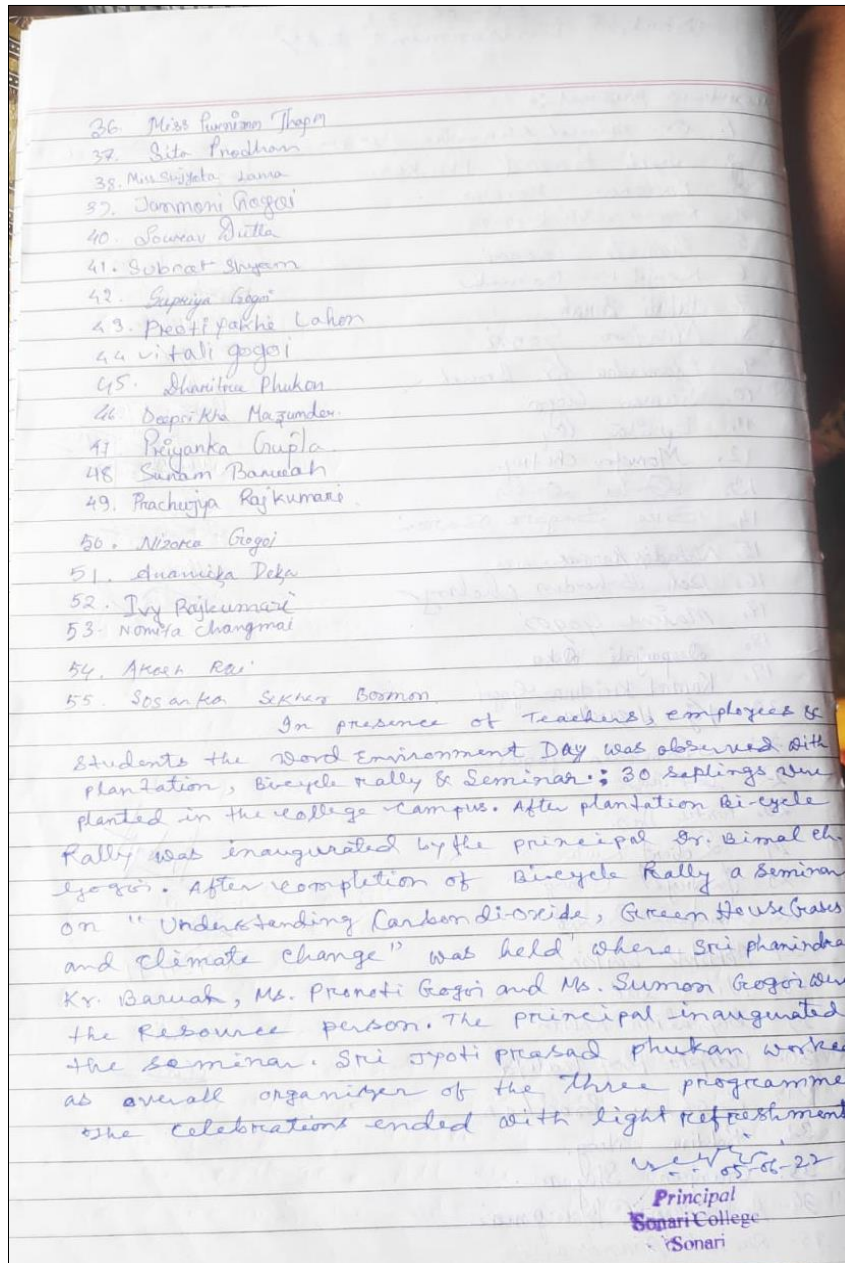 36. Miss Purnima Thapa
37. Sita Prodhan
38. Miss Sujyota Lama
39. Janmoni Gogoi
40. Sourav Dutta
41. Subrat Shyam
42. Supriya Gogoi
43. Preeti Lahon
44 vitali gogoi
45. Dharitree Phukon
46 Deeprikha Mazumder.
47 Priyanka Gupta.
48 Sunam Baruah
49. Prachujya Rajkumari.
50. Nizora Gogoi
51. Anamika Deka
52. Ivy Rajkumari
53. Nomita Changmai
54. Akash Rai
55. Sosanka Sekher Bormon.
In presence of Teachers, employees &
Students the Word Environment Day was observed with
plantation, Bicycle rally & Seminar.: 30 saplings were
planted in the college campus. After plantation Bi-cycle
Rally was inaugurated by the principal Dr. Bimal ch.
Gogoi. After completion of Bicycle Rally a Seminar
on "Understanding Carbondi-oxide, Green House Gases
and climate change" was held where Sri phanindra
Kr. Baruah, Ms. Pronoti Gogoi and Ms. Sumon Gogoi were
the Resource person. The principal inaugurated
the seminar. Sri Jyoti prasad phukan worked
as overall organizer of the three programme
The celebrations ended with light refreshment
05-06-22
Principal
Sonari College
Sonari